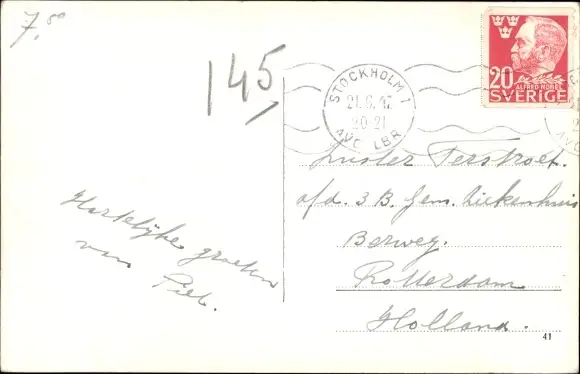 7,50
145
STOCKHOLM 1
21.6.47
20-21
AVG LBR
20
ALFRED NOBEL
SVERIGE
Zuster Terstroet.
afd. 3 B. Gem. Ziekenhuis
Bergweg.
Rotterdam
Holland.
Hartelijke groeten
van
Piet.
41